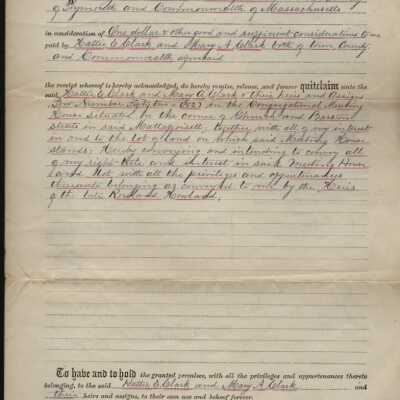 of Plymouth and Commonwealth of Massachusetts
in consideration of One dollar & other good and sufficient considerations to me
paid by Hattie E. Clark and Mary A. Clark both of County
and Commonwealth aforesaid
the receipt whereof is hereby acknowledged, do hereby remise, release, and forever quitclaim unto the
said Hattie E. Clark and Mary A. Clark & their heirs and Assigns
Pew Number fifty two (52) in the Congregational Meeting
House situated on the corner of Church and Barstow
streets in said Mattapoisett, together with all of my interest
in and to the lot of land on which said Meeting House
stands: Hereby conveying and intending to convey all
of my right title and interest in said Meeting House
land with all the privileges and appurtenances
thereunto belonging as conveyed to me by the Heirs
of the late Howland.
To have and to hold the granted premises, with all the privileges and appurtenances thereto
belonging, to the said Hattie E. Clark and Mary A. Clark and
their heirs and assigns, to their own use and behoof forever.